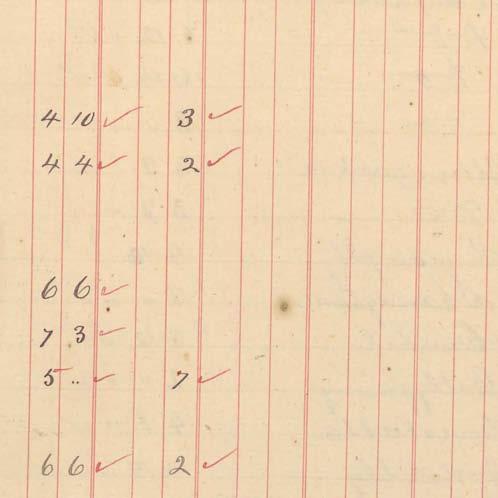 4 10 ✓ 3 ✓
4 4 ✓ 2 ✓
6 6 ✓
7 3 ✓
5 .. ✓ 7 ✓
6 6 ✓ 2 ✓